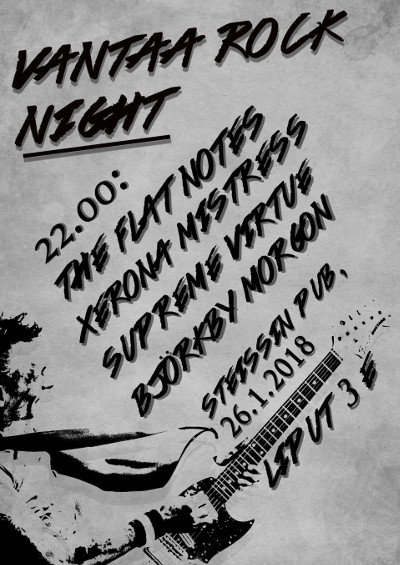 VANTAA ROCK
NIGHT
22.00:
THE FLAT NOTES
XERONA MISTRESS
SUPREME VIRTUE
BJÖRKBY MORGON
STEISSIN PUB,
26.1.2018
LIPUT 3 E